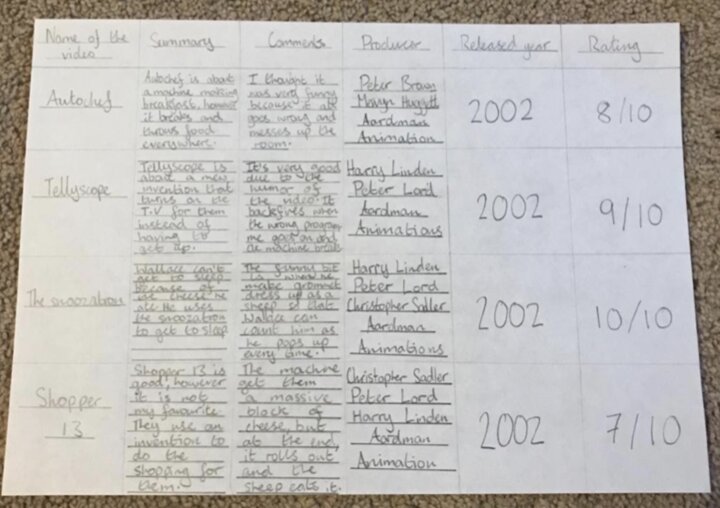 Name of the video
Summary
Comments
Producer
Released year
Rating
Autochef
Autochef is about
a machine making
breakfast, however
it breaks and
throws food
everywhere.
I thought it
was very funny
because it all
goes wrong and
messes up the
room.
Peter Brown
Huggett
Aardman
Animation
2002
8/10
Tellyscope
Tellyscope is
about a new
invention that
turns on the
T.V for them
instead of
having to
get up.
It's very good
due to the
humor of
the video. It
backfires when
the wrong program
me goes on and
the machine breaks
Harry Linden
Peter Lord
Aardman
Animations
2002
9/10
The snoozatron
Wallace can't
get to sleep
because of
the cheese he
ate. He uses
the snoozatron
to get to sleep
The funny bit
is when he
make grommet
dress up as a
sheep so that
Wallace can
count him as
he pops up
every time.
Harry Linden
Peter Lord
Christopher Sadler
Aardman
Animations
2002
10/10
Shopper
13
Shopper 13 is
good, however
it is not
my favourite
They use an
invention to
do the
shopping for
them.
The machine
get them
a massive
block of
cheese, but
at the end,
it rolls out
and the
sheep eats it.
Christopher Sadler
Peter Lord
Harry Linden
Aardman
Animation
2002
7/10